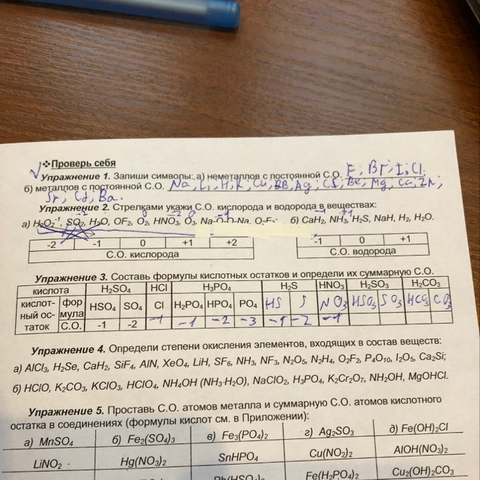 √ ❖Проверь себя
Упражнение 1. Запиши символы: а) неметаллов с постоянной С.О. F, Br, I, Cl
б) металлов с постоянной С.О. Na, Li, H, K, Cu, Ag, Cs, Be, Mg, Ca, Zn,
Sr, Cd, Ba.
Упражнение 2. Стрелками укажи С.О. кислорода и водорода в веществах:
а) H₂O₂, SO₂, H₂O, OF₂, O₂, HNO₃, O₃, б) CaH₂, NH₃, H₂S, NaH, H₂, H₂O.
-2 -1 0 +1 +2 -1 0 +1
С.О. кислорода С.О. водорода
Упражнение 3. Составь формулы кислотных остатков и определи их суммарную С.О.
кислота H₂SO₄ HCl H₃PO₄ H₂S HNO₃ H₂SO₃ H₂CO₃
кислотный остаток формула HSO₄ SO₄ Cl H₂PO₄ HPO₄ PO₄ HS S NO₃ HSO₃ SO₃ HCO₃ CO₃
С.О. -1 -2 -1 -1 -2 -3 -1 -2 -1
Упражнение 4. Определи степени окисления элементов, входящих в состав веществ:
а) AlCl₃, H₂Se, CaH₂, SiF₄, AlN, XeO₄, LiH, SF₆, NH₃, NF₃, N₂O₅, N₂H₄, O₂F₂, P₄O₁₀, I₂O₅, Ca₂Si;
б) HClO, K₂CO₃, KClO₃, HClO₄, NH₄OH (NH₃·H₂O), NaClO₂, H₃PO₄, K₂Cr₂O₇, NH₂OH, MgOHCl.
Упражнение 5. Проставь С.О. атомов металла и суммарную С.О. атомов кислотного
остатка в соединениях (формулы кислот см. в Приложении):
а) MnSO₄ б) Fe₂(SO₄)₃ в) Fe₃(PO₄)₂ г) Ag₂SO₃ д) Fe(OH)₂Cl
LiNO₂ Hg(NO₃)₂ SnHPO₄ Cu(NO₂)₂ AlOH(NO₃)₂
Fe(H₂PO₄)₂ Cu₂(OH)₂CO₃